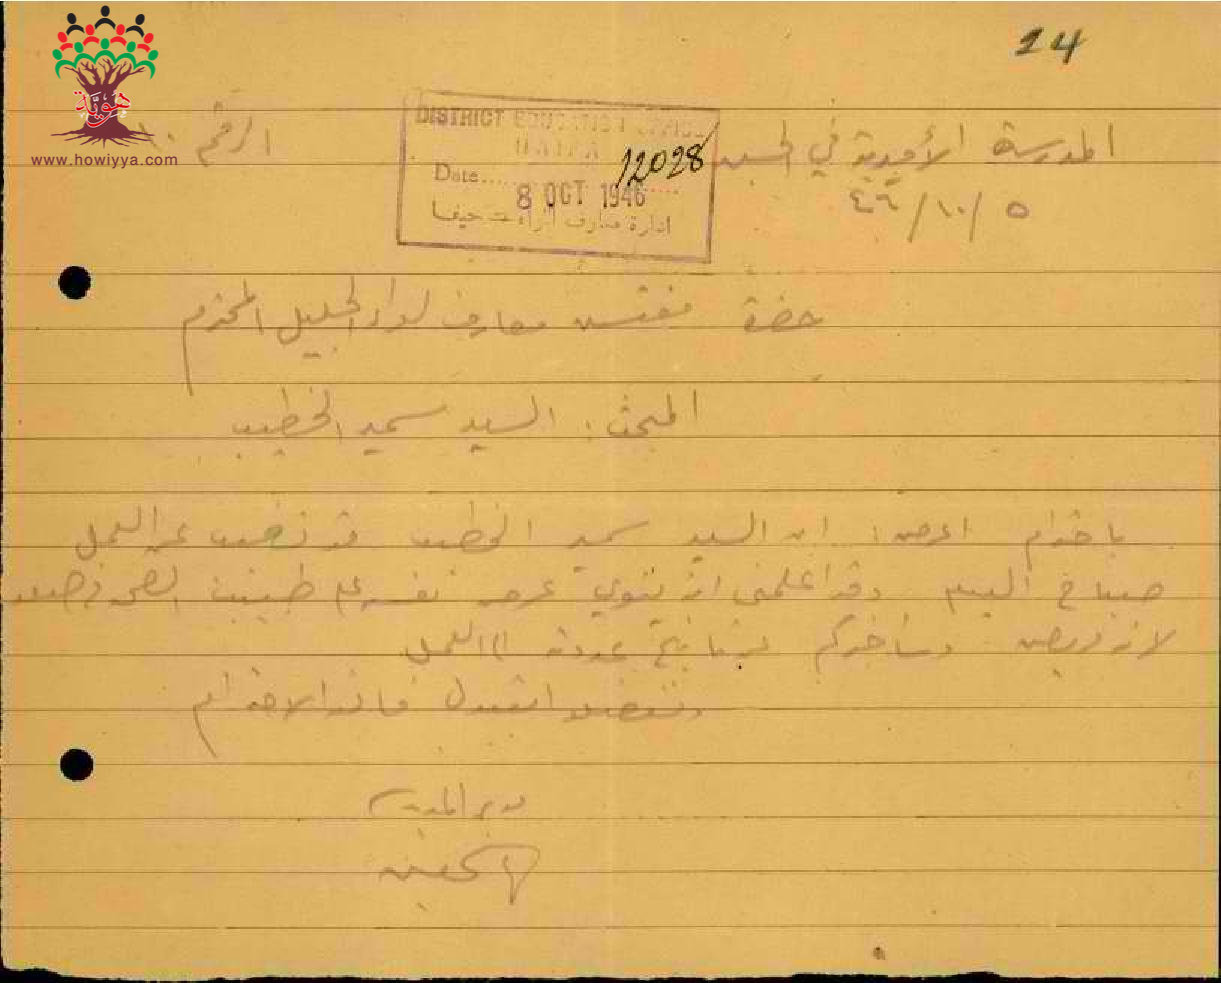 24
هوية
www.howiyya.com
المدرسة الأميرية في
الرقم
DISTRICT EDUCATION OFFICE
HAIFA
12028
Date
8 OCT 1946
ادارة معارف لواء حيفا
٥/١٠/٤٦
حضرة مفتش معارف لواء الجليل المحترم
المبحث: السيد سميح الخطيب
باحترام اعرض: ان السيد سميح الخطيب قد تغيب عن العمل
صباح اليوم وقد اعلمني انه ينوي عرض نفسه على طبيب الصحة
لانه مريض وسأخبركم بتاريخ عودته الى العمل
وتفضلوا بقبول فائق الاحترام
مدير المدرسة